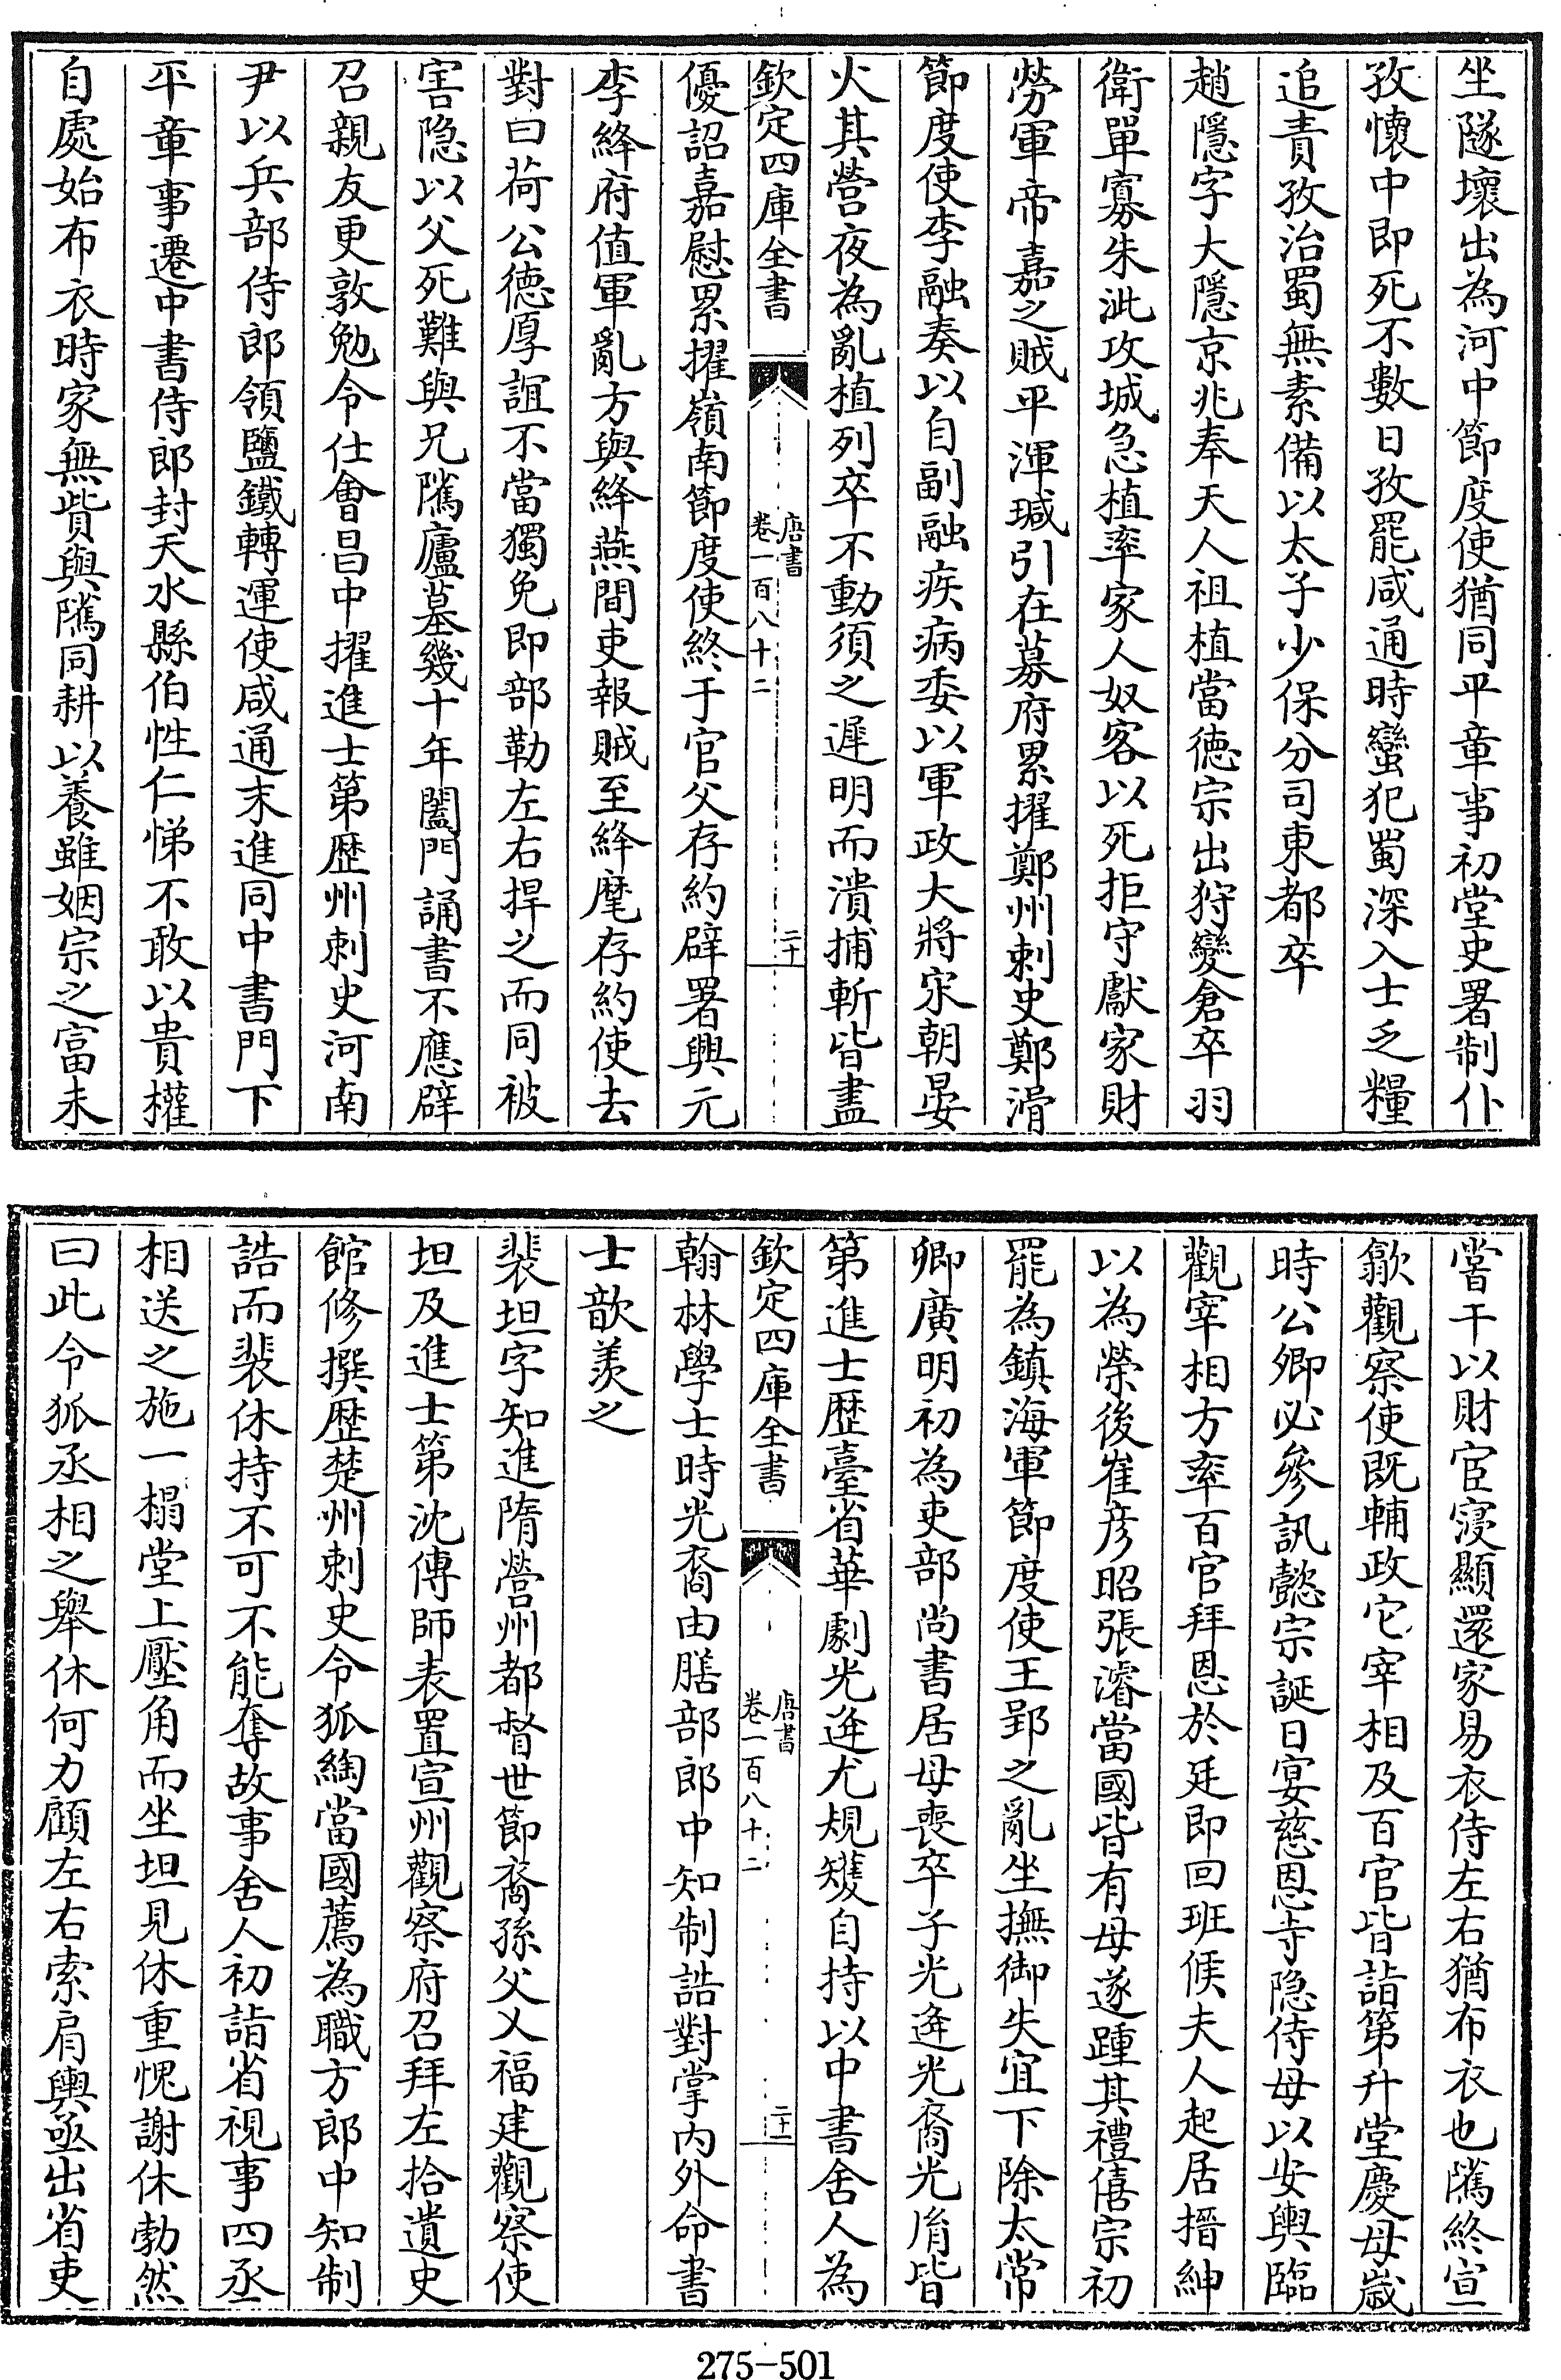 坐隧壞出為河中節度使猶同平章事初堂史署制仆
孜懷中即死不數日孜罷咸通時蠻犯蜀深入士乏糧
追責孜治蜀無素備以太子少保分司東都卒
趙隱字大隱京兆奉天人祖植當徳宗出狩變倉卒羽
衛單寡朱泚攻城急植率家人奴客以死拒守獻家財
勞軍帝嘉之賊平渾瑊引在幕府累擢鄭州刺史鄭滑
節度使李融奏以自副融疾病委以軍政大將宋朝晏
火其營夜為亂植列卒不動須之遲明而潰捕斬皆盡
欽定四庫全書
唐書
卷一百八十二
二十
優詔嘉慰累擢嶺南節度使終于官父存約辟署興元
李絳府值軍亂方與絳燕間吏報賊至絳麾存約使去
對曰荷公徳厚誼不當獨免即部勒左右捍之而同被
害隐以父死難與兄隲廬墓幾十年闔門誦書不應辟
召親友更敦勉令仕會昌中擢進士第歴州刺史河南
尹以兵部侍郎領鹽鐵轉運使咸通末進同中書門下
平章事遷中書侍郎封天水縣伯性仁悌不敢以貴權
自處始布衣時家無貲與隲同耕以養雖姻宗之富未
嘗干以財宦寖顯還家易衣侍左右猶布衣也隲終宣
歙觀察使既輔政它宰相及百官皆詣第升堂慶母歲
時公卿必參訊懿宗誕日宴慈恩寺隐侍母以安輿臨
觀宰相方率百官拜恩於廷即回班候夫人起居搢紳
以為榮後崔彦昭張濬當國皆有母遂踵其禮僖宗初
罷為鎮海軍節度使王郢之亂坐撫御失宜下除太常
卿廣明初為吏部尚書居母喪卒子光逢光裔光胤皆
第進士歴臺省華劇光逢尤規矱自持以中書舍人為
欽定四庫全書
唐書
卷一百八十二
二十一
翰林學士時光裔由膳部郎中知制誥對掌内外命書
士歆羨之
裴坦字知進隋營州都督世節裔孫父乂福建觀察使
坦及進士第沈傳師表置宣州觀察府召拜左拾遺史
館修撰歴楚州刺史令狐綯當國薦為職方郎中知制
誥而裴休持不可不能奪故事舍人初詣省視事四丞
相送之施一榻堂上壓角而坐坦見休重愧謝休勃然
曰此令狐丞相之舉休何力顧左右索肩輿亟出省吏
275-501